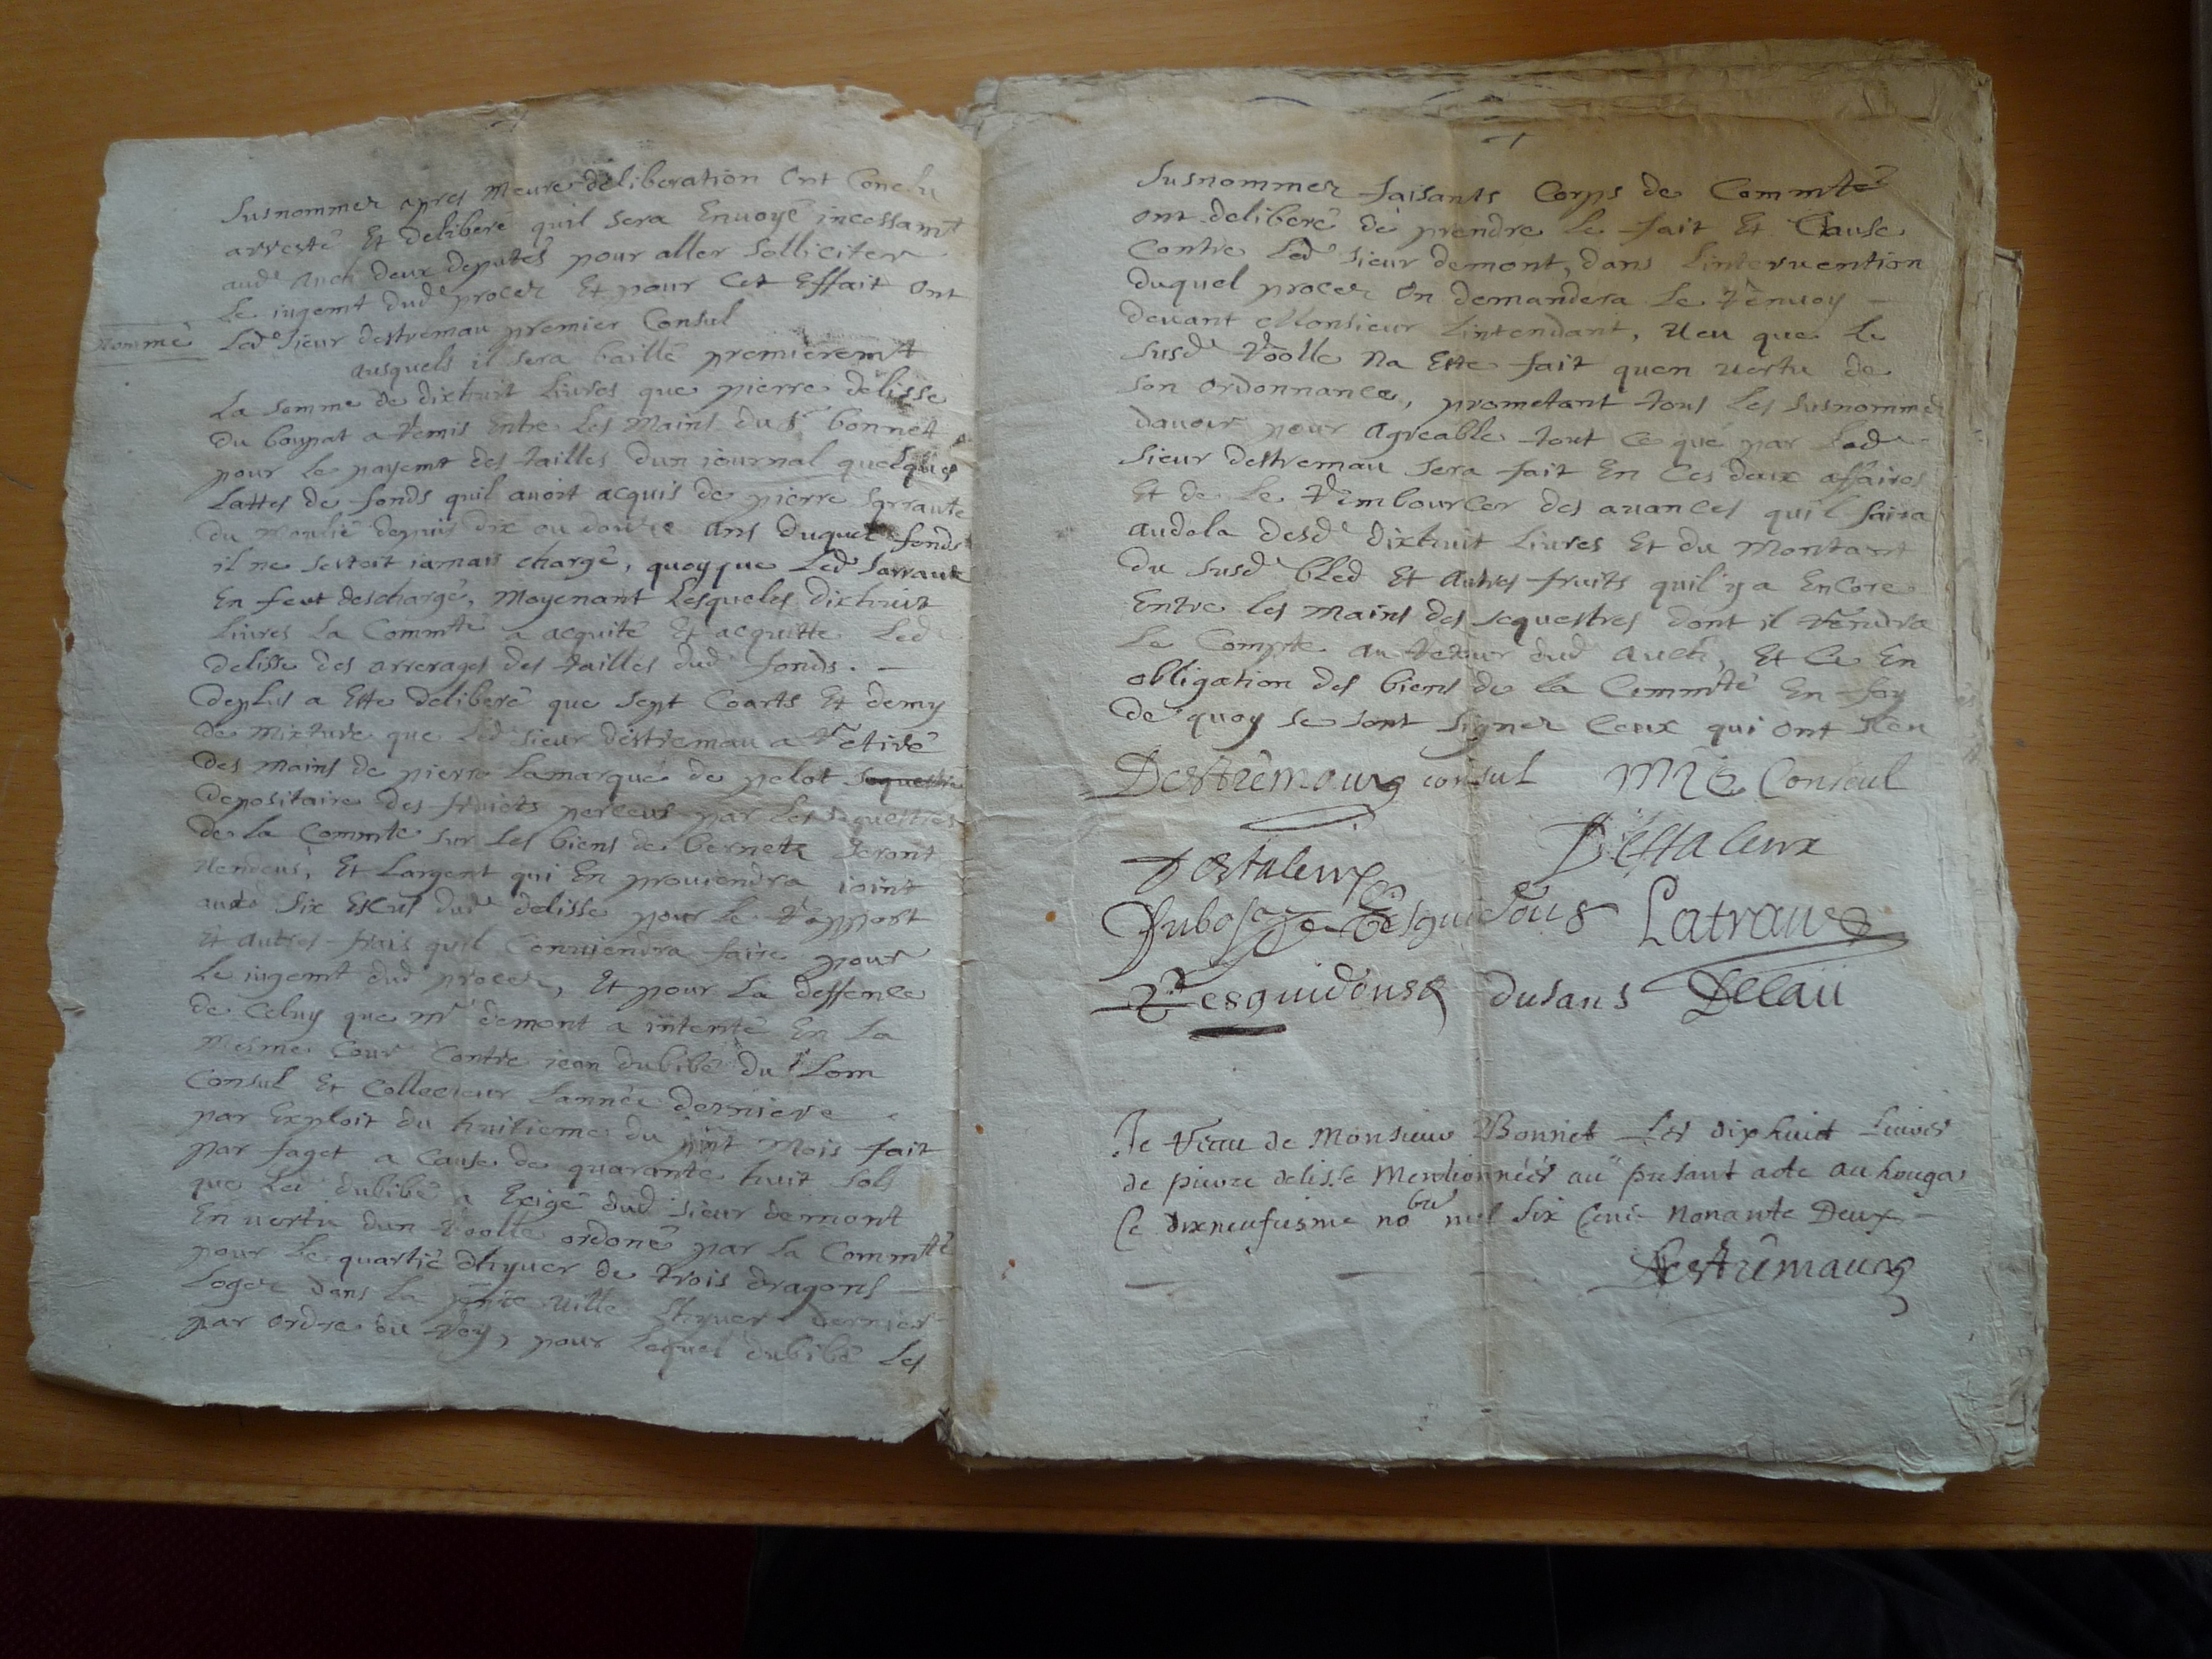 Susnommez apres meure deliberation ont Conclu
arresté Et deliberé quil sera Enuoyé incessamt
aud Auch deux deputés pour aller solliciter
Le iugemt dud procez Et pour Cet Effait ont
nommé Led Sieur destremau premier Consul
ausquels il sera baillé premieremt
La somme de dixhuit Liures que pierre delisse
du boupat a remis Entre Les Mains du Sr bonnet
pour Le payemt des tailles dun iournal quelques
Lattes de fonds quil auoit acquis de pierre Sarraute
du depuis dix ou douze ans duquel fonds
il ne sestoit iamais chargé, quoyque Led Sarraute
En feut deschargé, Moyenant Lesqueles dixhuit
Liures La Commté a acquité Et acquitte Led
delisse des arrerages des tailles dud fonds. —
deplus a Este deliberé que sept Coarts Et demy
de mixture que Led Sieur destremau a retiré
des mains de pierre Lamarque de pelot sequestre
depositaire des fruicts perceus par Les sequestres
de La Commté sur Les biens de bernets seront
Vendeus, Et Largent qui En prouiendra ioint
aud Six Escus dud delisse pour Le rapport
Et autres frais quil Conuiendra faire pour
Le iugemt dud procez, Et pour La deffence
de Celuy que mr demont a intenté En La
mesme Cour Contre iean dubibé du Lom
Consul Et Collecteur Lannée derniere
par Exploit du huitieme du pnt Mois fait
par faget a Cause de quarante huit sols
que Led dubibé a Exigé dud sieur demont
En uertu dun Roolle ordoné par La Commté
pour Le quartié dhyuer de trois dragons
Logez dans La pnte uille Lhyuer dernier
par ordre du Roy, pour Lequel dubibé Les
Susnommez faisants Corps de Commté
ont deliberé de prendre Le fait Et Cause
Contre Led sieur demont, dans Linteruention
duquel procez On demandera Le renuoy —
deuant Monsieur Lintendant, Veu que Le
susd Roolle Na Este fait quen uertu de
son ordonnance, prometant tous Les susnommez
dauoir pour Agreable tout Ce que par Led
Sieur destremau sera fait En Ces deux affaires
Et de Le rembourcer des auances quil faira
audela desd dixhuit Liures Et du Montant
du susd bled Et Autres fruits quil y a Encore
Entre Les mains des sequestres dont il rendra
Le Compte au retour dud Auch, Et Ce En
obligation des biens de La Commté En foy
de quoy se sont signez Ceux qui ont sceu
Destremau consul Consul
Destaleux
Destaleux
Dubosc Desguidous Latraue
Desguidous dusans Delaü
Je reau de Monsieur Bonnet Les dixhuit Liures
de pierre delisse Mentionnées au presant acte au houga
Ce dixneufiesme nobre mil six Cens nonante Deux —
Destremau